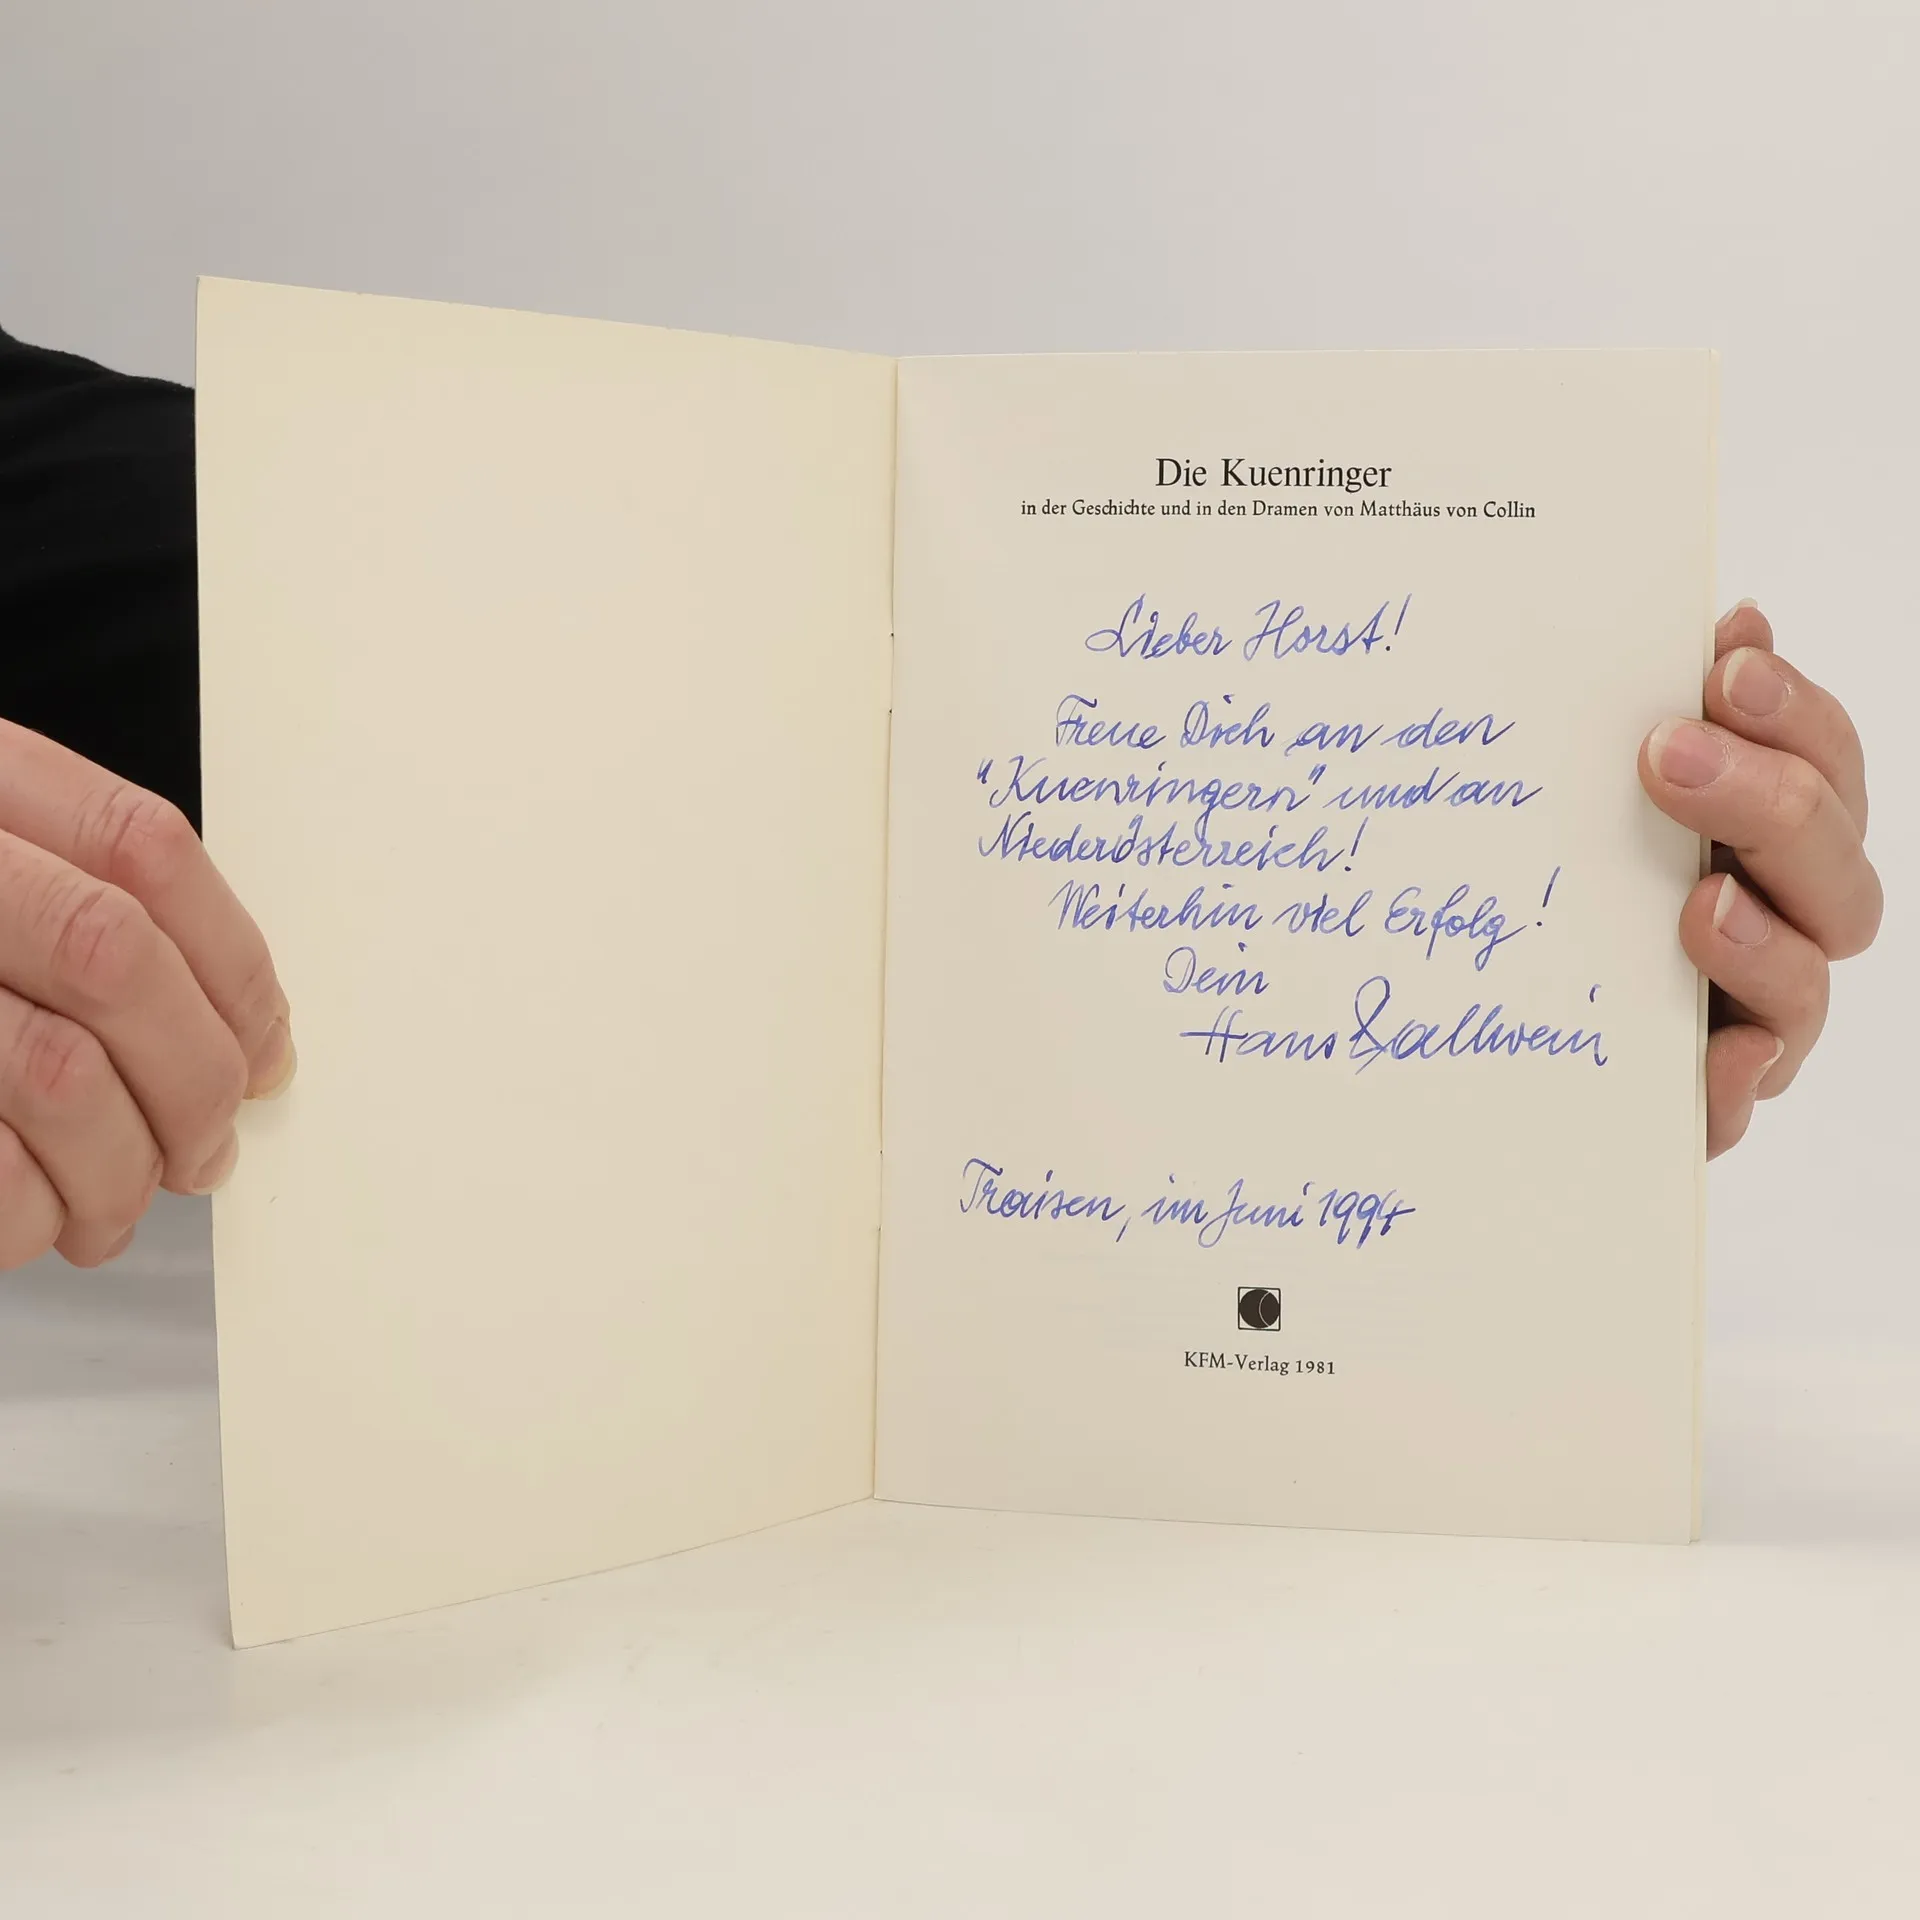 Die Kuenringer
in der Geschichte und in den Dramen von Matthäus von Collin
Lieber Horst!
Freue Dich an den
"Kuenringern" und an
Niederösterreich!
Weiterhin viel Erfolg!
Dein
Hans
Traisen, im Juni 1994
KFM-Verlag 1981